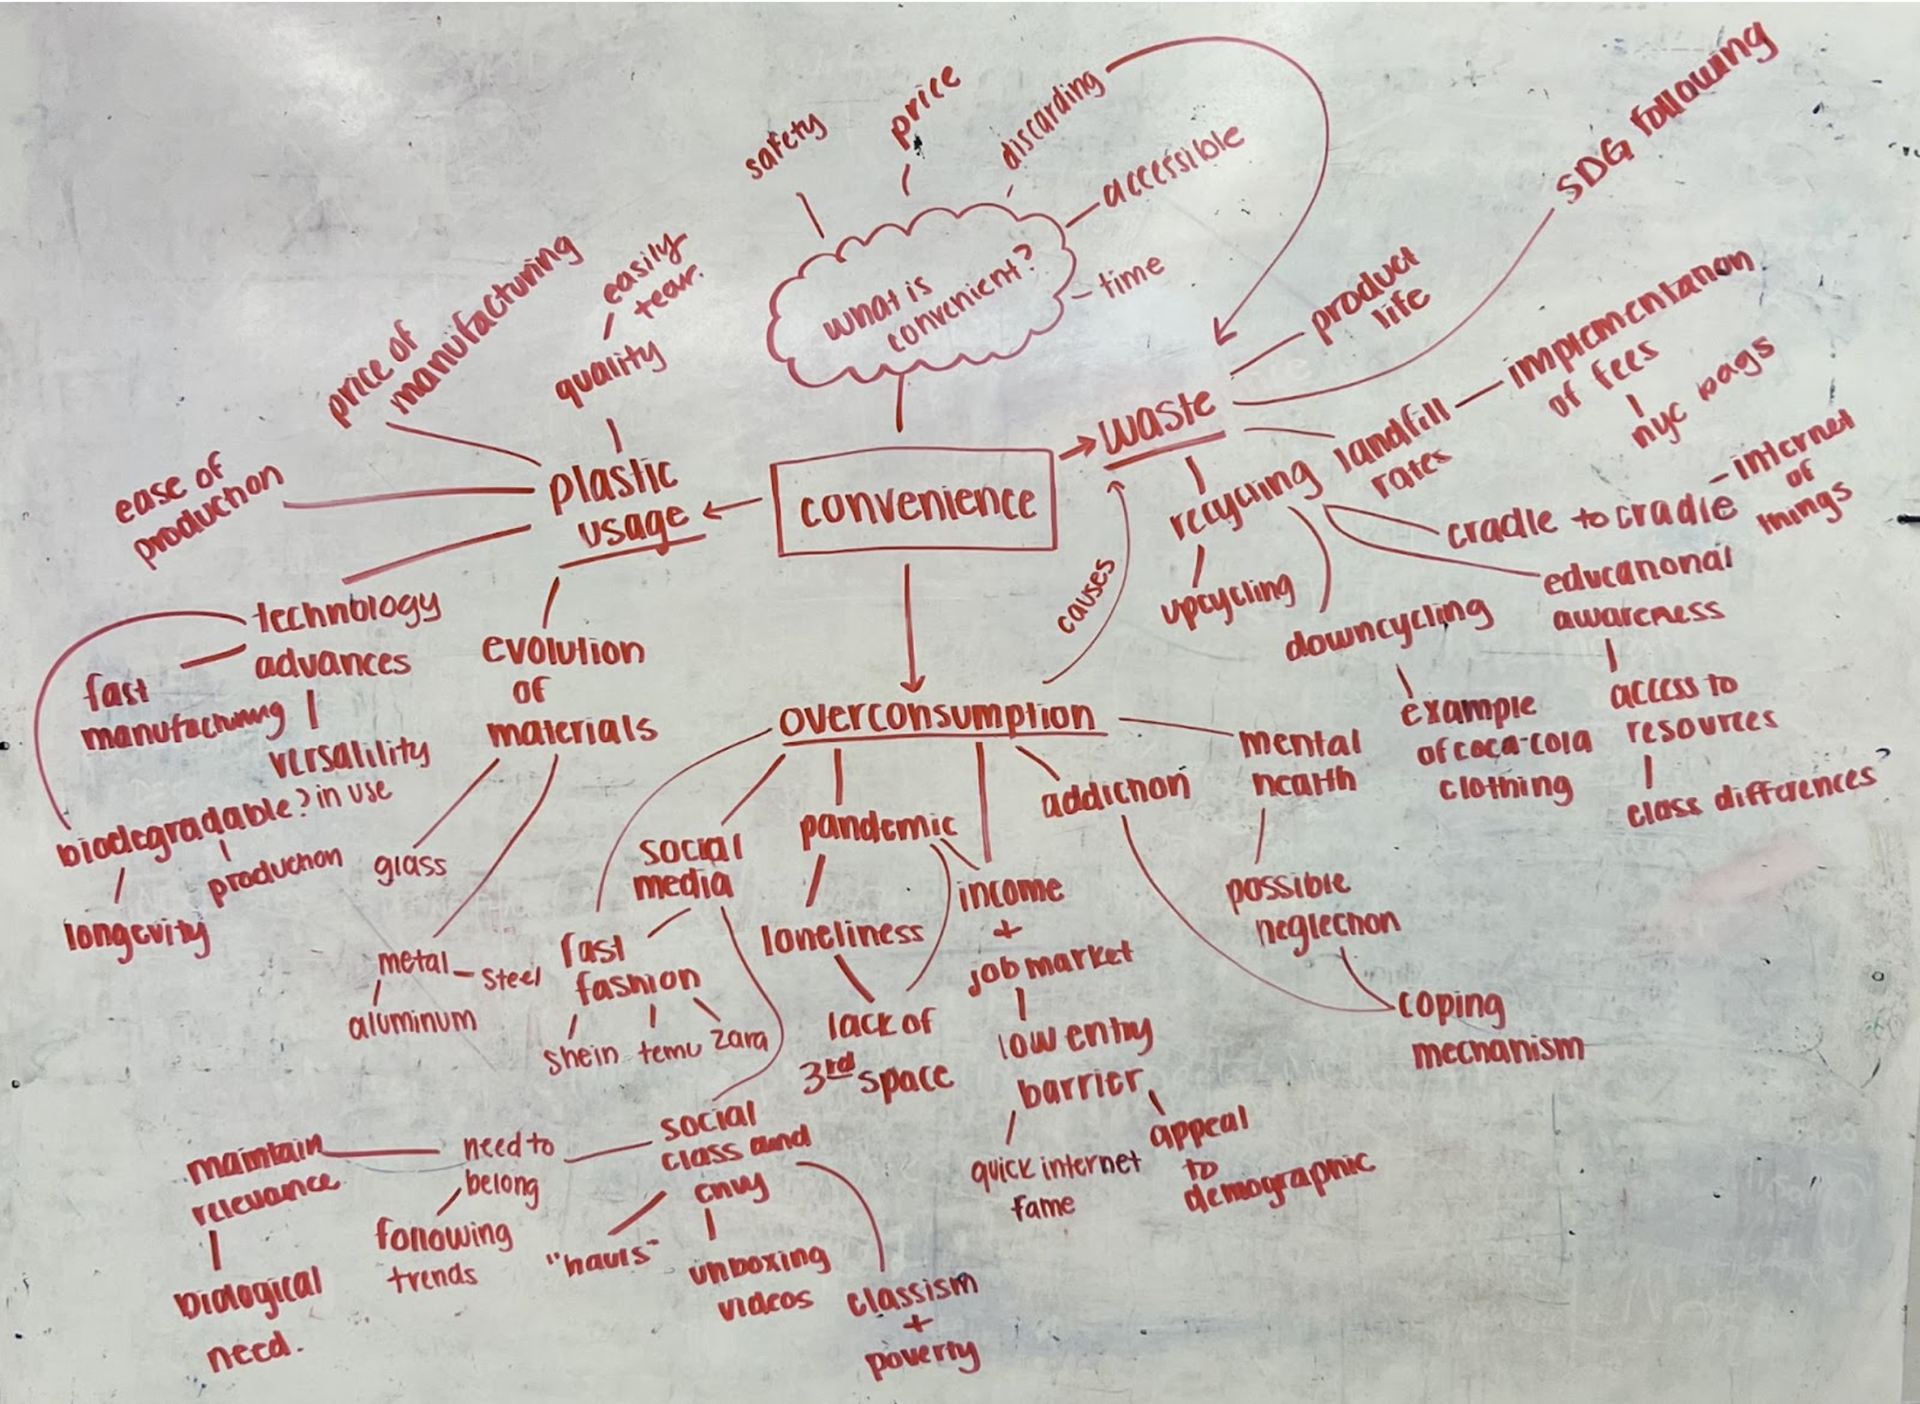 safety
price
discarding
accessible
time
What is
convenient?
SDG following
product
life
price of
manufacturing
easily
tear.
quality
ease of
production
plastic
usage
convenience
waste
landfill
rates
implementation
of fees
nyc bags
recycling
upcycling
cradle to cradle
internet
of
things
educational
awareness
access to
resources
class differences
downcycling
example
of coca-cola
clothing
causes
technology
advances
fast
manufacturing
versalility
in use
biodegradable?
production
longevity
evolution
of
materials
glass
metal
steel
aluminum
overconsumption
social
media
fast
fashion
shein
temu
zara
pandemic
loneliness
lack of
3rd space
income
+
job market
low entry
barrier
quick internet
fame
appeal
to
demographic
addiction
mental
health
possible
neglection
coping
mechanism
social
class and
envy
need to
belong
maintain
relevance
biological
need.
following
trends
"hauls"
unboxing
videos
classism
+
poverty